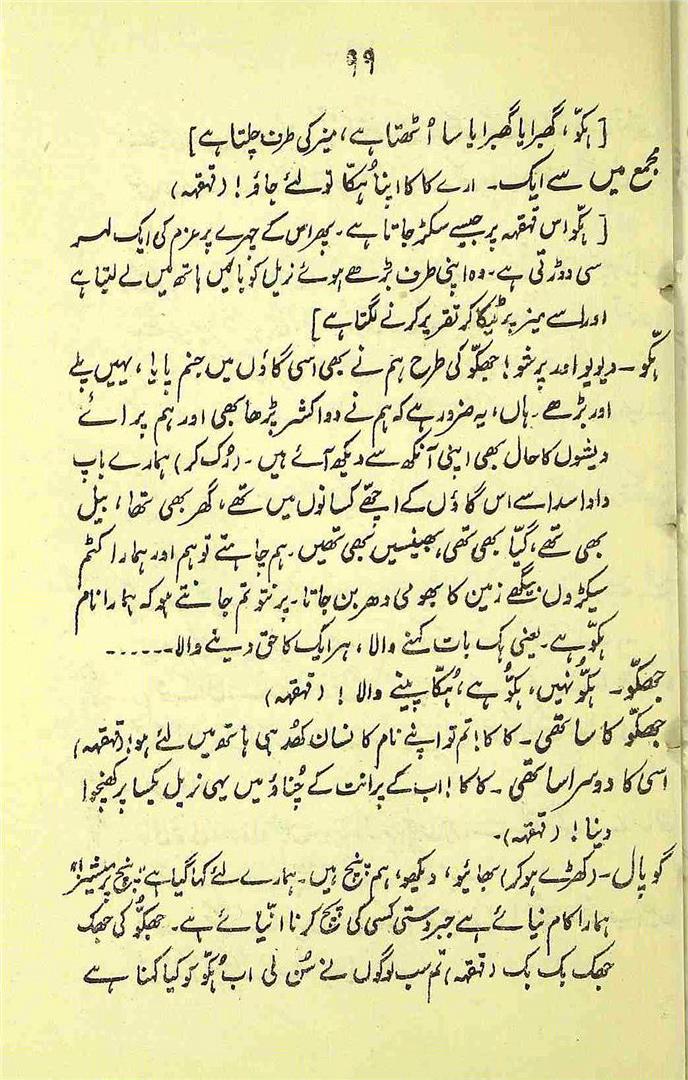 ۹۹
[ ہکّو، گھبرایا گھبرایا سا اُٹھتا ہے، میز کی طرف چلتا ہے]
مجمع میں سے ایک۔ ارے کاکا اپنا ہُکّا تو لئے جاؤ! (قہقہہ)
[ ہکّو اس قہقہہ پر جیسے سکڑ جاتا ہے۔ پھر اس کے چہرے پر عزم کی ایک لہر
سی دوڑتی ہے۔ وہ اپنی طرف بڑھے ہوئے نریل کو بائیں ہاتھ میں لے لیتا ہے
اور اسے میز پر ٹیکا کر تقریر کرنے لگتا ہے]
ہکّو۔ دیویو اور پرشو! جھکّو کی طرح ہم نے بھی اسی گاؤں میں جنم پایا، یہیں پلے
اور بڑھے۔ ہاں، یہ ضرور ہے کہ ہم نے دو اکشر پڑھا بھی اور ہم پرائے
دیشوں کا حال بھی اپنی آنکھ سے دیکھ آئے ہیں۔ (رُک کر) ہمارے باپ
دادا سدا سے اس گاؤں کے اچھے کسانوں میں تھے، گھر بھی تھا، بیل
بھی تھے، گیّا بھی تھی، بھینسیں بھی تھیں۔ ہم چاہتے تو ہم اور ہمارا کٹم
سیکڑوں بیگھے زمین کا بھومی دھر بن جاتا۔ پرنتو تم جانتے ہو کہ ہمارا نام
ہکّو ہے۔ یعنی ہک بات کہنے والا، ہر ایک کا حق دینے والا۔۔۔۔۔۔
جھکّو۔ ہکّو نہیں، ہُکّو ہے، ہُکّا پینے والا! (قہقہہ)
جھکّو کا ساتھی۔ کاکا! تم تو اپنے نام کا نسان کھُد ہی ہاتھ میں لئے ہو! (قہقہہ)
اسی کا دوسرا ساتھی۔ کاکا! اب کے پرانت کے چُناؤ میں یہی نریل بکسا پر کھنچوا
دینا! (قہقہہ)۔
گوپال۔ (کھڑے ہو کر) بھائیو، دیکھو، ہم پنچ ہیں۔ ہمارے لئے کہا گیا ہے "پنچ پرمیشیر"
ہمارا کام نیائے ہے جبردستی کسی کی پچ کرنا انیائے ہے۔ جھکّو کی جھک
جھک بک بک (قہقہہ) تم سب لوگوں نے سُن لی اب ہُکّو کو کیا کہنا ہے